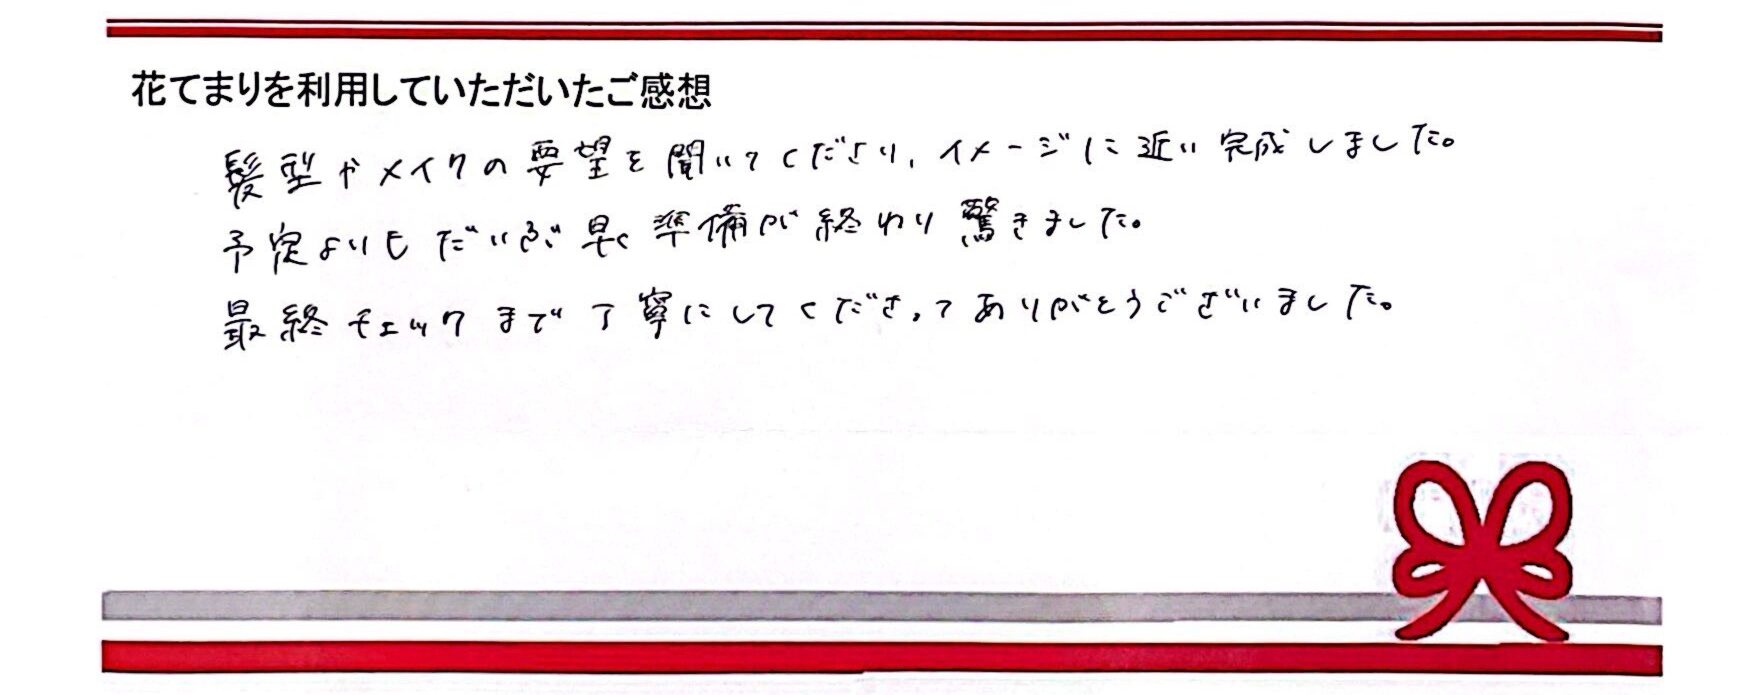 花てまりを利用していただいたご感想
髪型やメイクの要望を聞いてくださり、イメージに近い完成しました。
予定よりもだいぶ早く準備が終わり驚きました。
最終チェックまで丁寧にしてくださってありがとうございました。